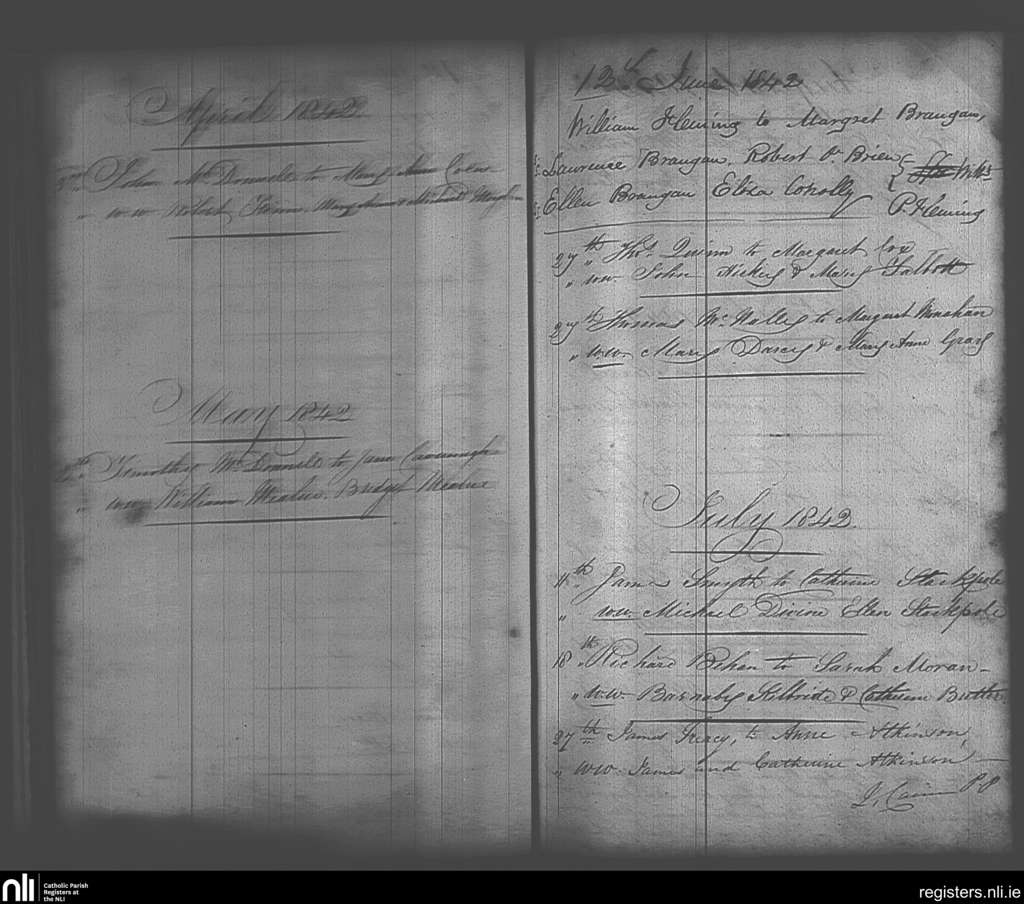 April 1842.
John McDonnell to Mary Anne
" w.w. Robert & Michael
May 1842
Timothy McDonnell to Jane Cavanagh
" ww William Mealue. Bridget Mealue
12th June 1842
William Fleming to Margret Brangan,
Laurence Brangan, Robert O'Brien
Ellen Brangan Eliza Conolly
P. Fleming
27th " Thos. Quinn to Margaret Cox
" ww. John Hickey & Mary Talbott
27th Thomas McNally to Margaret Monahan
" ww. Mary Darcy & Mary Anne Gray
July 1842.
11th James Smyth to Catherine Stackpole
" ww. Michael Divine Ellen Stackpole
18th " Richard Behan to Sarah Moran -
" w.w Barnaby Kilbride & Catherine Butler
27th James Treacy, to Anne Atkinson,
" ww. James and Catherine Atkinson
J. Cain PP
nli
Catholic Parish
Registers at
the NLI
registers.nli.ie